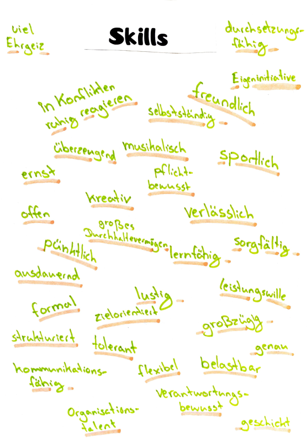 viel
Ehrgeiz
Skills
durchsetzungs-
fähig
Eigeninitiative
In Konflikten
ruhig reagieren
selbstständig
freundlich
überzeugend
musikalisch
sportlich
ernst
pflicht-
bewusst
kreativ
offen
großes
Durchhaltevermögen
verlässlich
pünktlich
lernfähig
sorgfältig
ausdauernd
lustig
leistungswille
formal
zielorientiert
großzügig
strukturiert
tolerant
genau
kommunikations-
fähig
flexibel
belastbar
verantwortungs-
bewusst
Organisations-
talent
geschickt